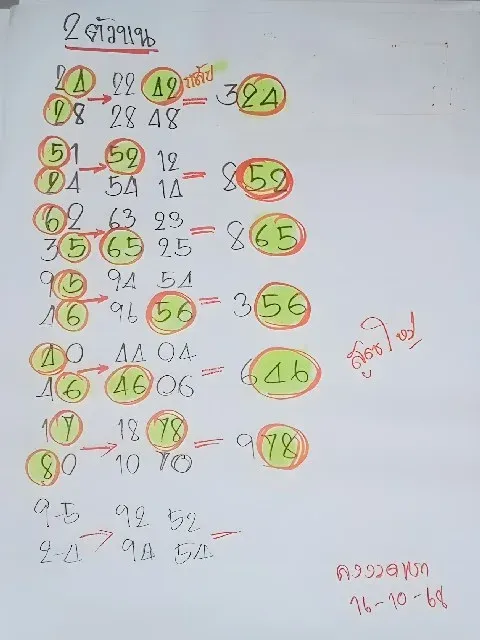 2 ตัวบน
24 22 42 กลับ
28 28 48 = 324
51 52 12
24 54 14 = 852
62 63 23
35 65 25 = 865
95 94 54
46 96 56 = 356
40 44 04
46 46 06 = 646
17 18 78
80 10 70 = 978
สูตรใหม่
9-5 92 52
2-4 94 54 =
16-10-68